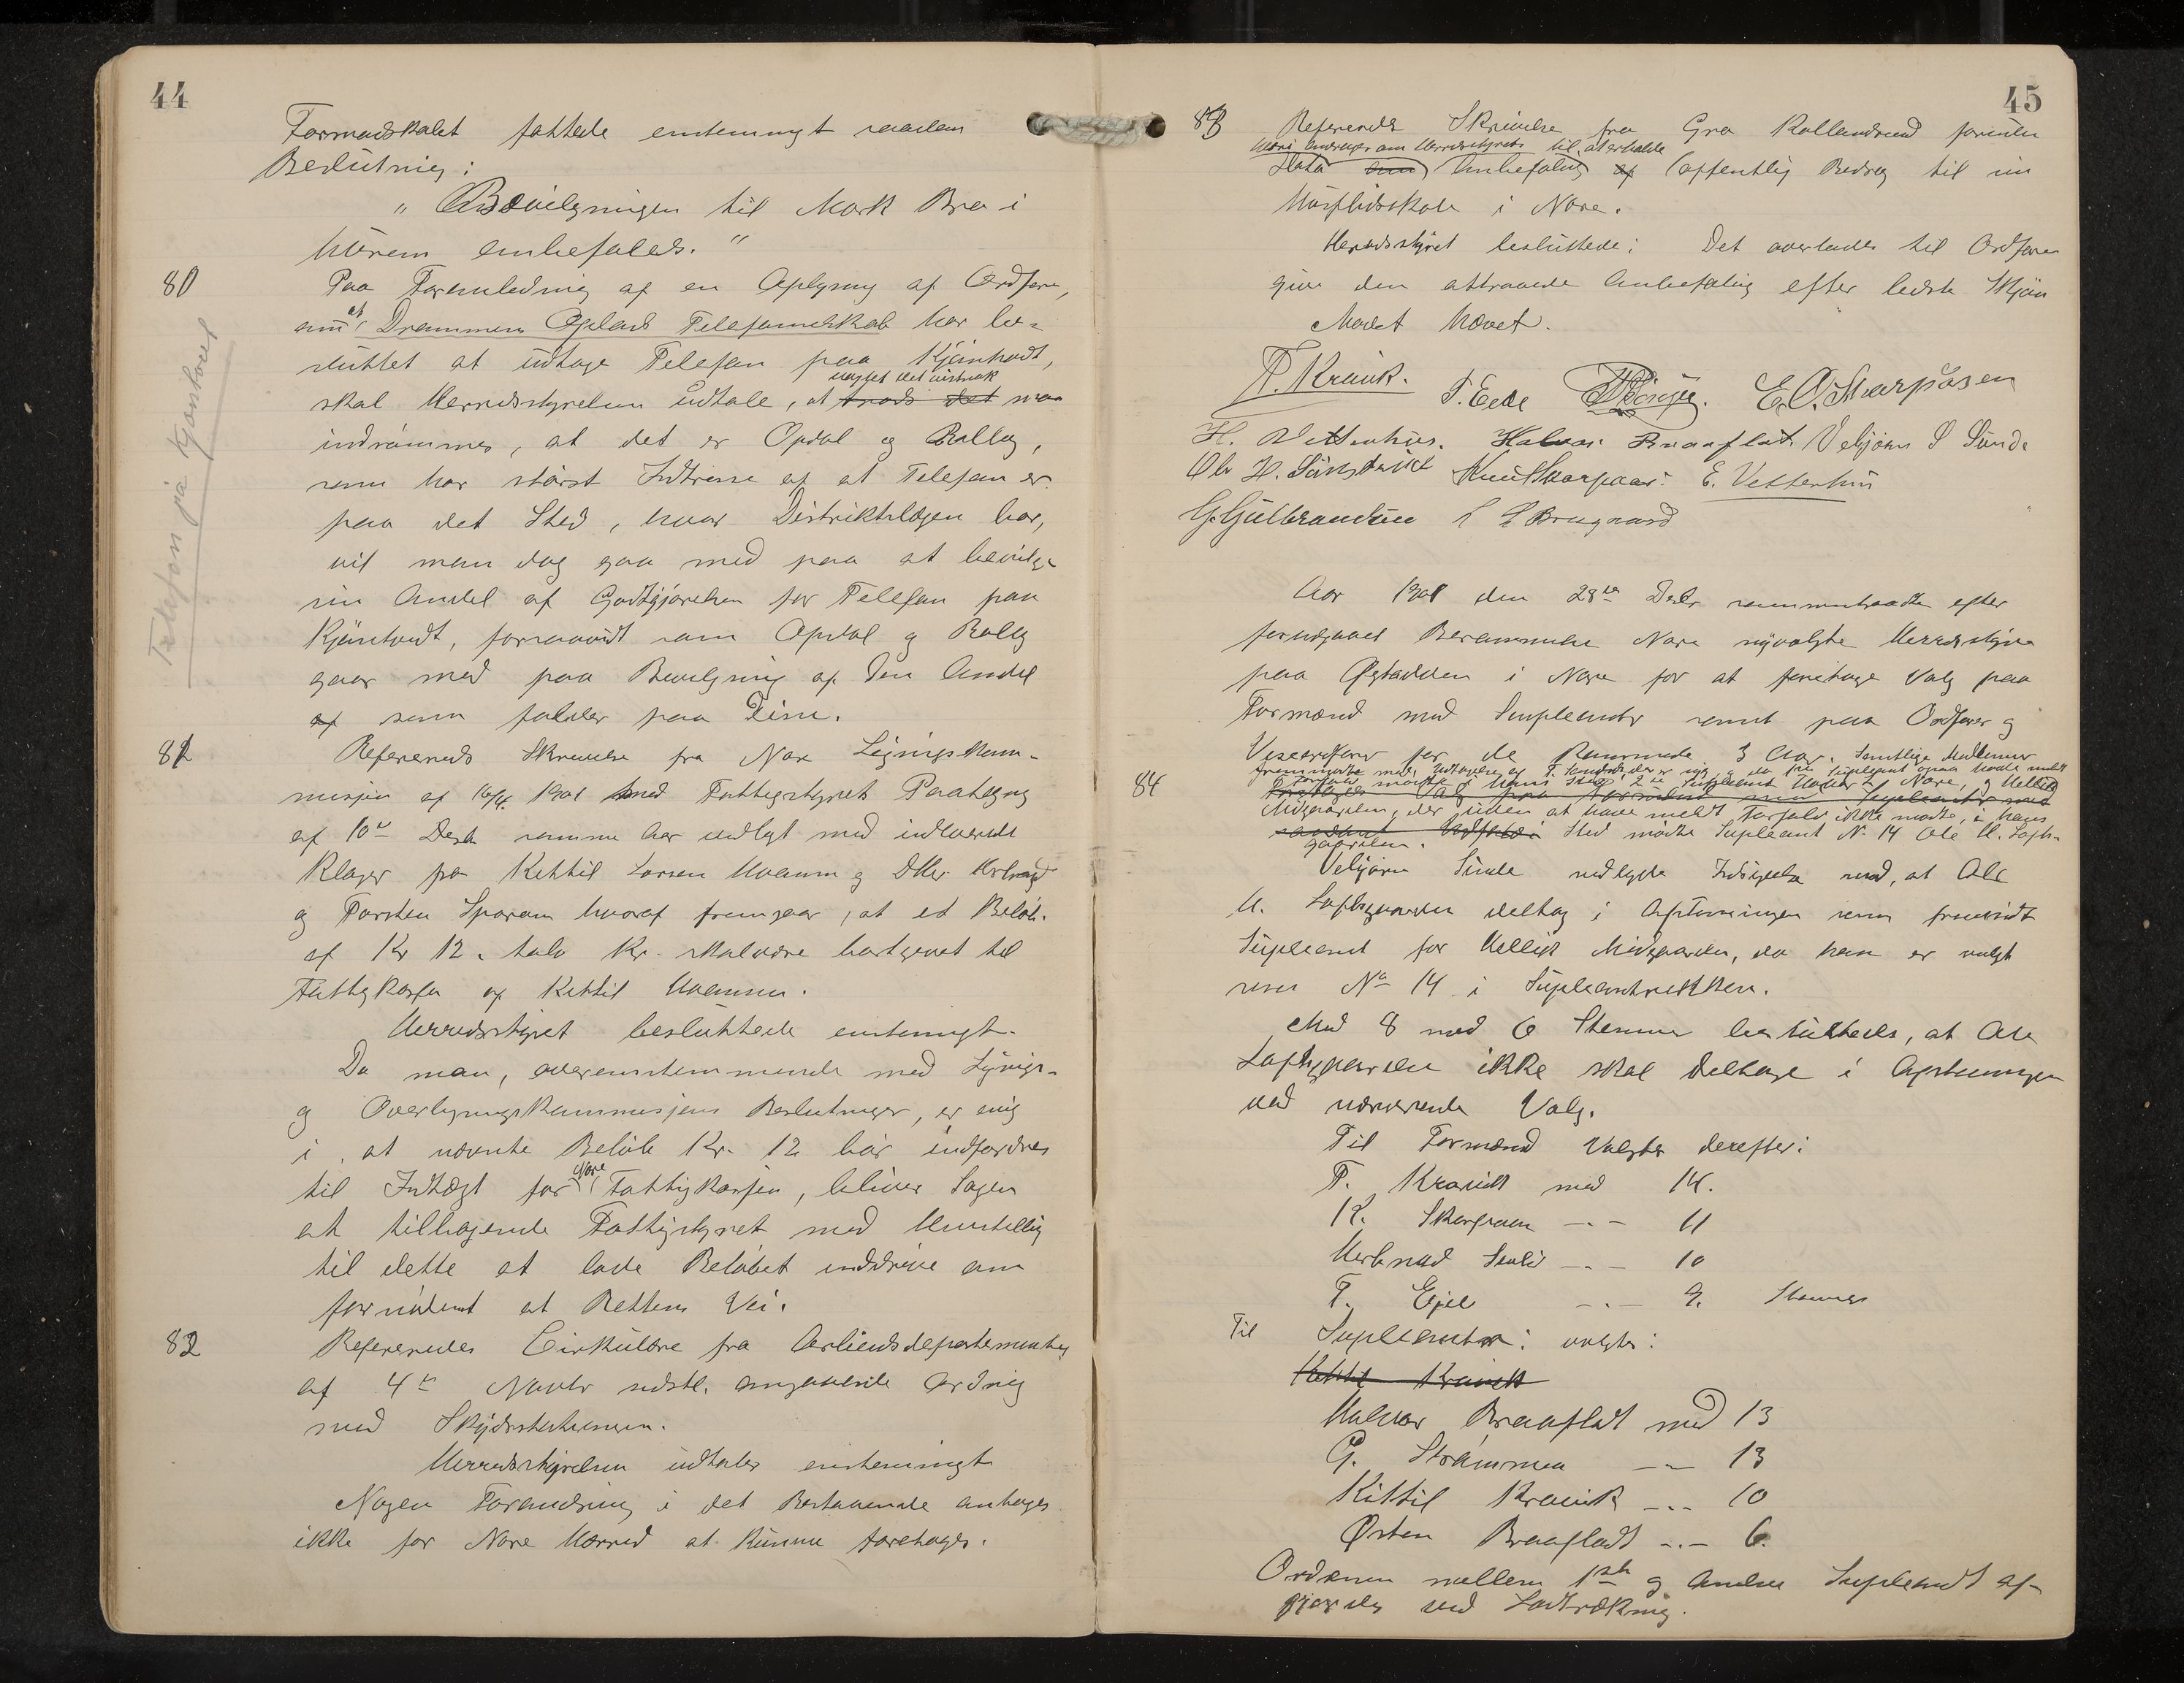 44
Formandskabet fattede enstemmigt saadan
Beslutning:
" Bevilgningen til Mork Bro i
Uvrem anbefales. "
80 Paa Foranledning af en Oplysning af Ordfører,
om at Drammens Oplands Telefonselskab har be-
sluttet at udtage Telefon paa Kjønhovdt,
uagtet det vistnok
skal Herredsstyrelsen udtale, at trods det maa
indrømmes, at det er Opdal og Rollag,
som har størst Intresse af at Telefon er
paa det Sted, hvor Distriktslægen bor,
vil man dog gaa med paa at bevilge
sin Andel af Godtgjørelsen for Telefon paa
Kjønhovdt, forsaavidt som Opdal og Rollag
gaar med paa Bevilgning af den Andel
af som falder paa Disse.
Telefon på Kjønhovd
81 Refereredes Skrivelse fra Nore Ligningskom-
mission af 16/4 1901 med Fattigstyrets Paategning
af 10de Decbr samme Aar vedlagt med indleverede
Klager fra Kittil Larsen Uvamm g
og Torsten Sporan hvoraf fremgaar, at et Beløb
af Kr 12. tolv Kr. skal være bortgivet til
Fattigkassen af Kittil Uvamm.
Herredsstyret besluttede enstemmigt.
Da man, overensstemmende med Lignings-
og Overligningskommissjens Beslutninger, er enig
i, at nævnte Beløb Kr. 12 bør indfordres
til Indtægt for Nore Fattigkassen, bliver Sagen
at tilbagesende Fattigstyret med Henstilling
til dette at lade Beløbet inddrive om
fornødent at Rettens Vei.
82 Refereredes Cirkulære fra Arbeidsdepartementet
af 4de Novbr sidstl. angaaende Ordning
med Skydsstationerne.
Herredsstyrelsen udtaler enstemmigt
Nogen Forandring i det Bestaaende antages
ikke for Nore Herred at kunne foretages.
45
83 Refereredes Skrivelse fra Gro Kollandsrud forinden
hvori andrages om Herredsstyrets til at erholde
Stats om Anbefaling af offentlig Bidrag til en
Husflidsskole i Nore.
Herredsstyret besluttede: Det overlades til Ordfører
give den attraaede Anbefaling efter bedste Skjøn
Mødet hævet.
T. Kravik. T. Eide E. O. Skarpaasen
H. Vetterhus. Halvor Braaflat Vebjørn S Sunde
Ole H. Knut Skarpaas. E. Vetterhus
G. Gulbrandsen Bragaard
Aar 1901 den 28de Decbr sammentraadte efter
forudgaaet Berammelse Nore nyvalgte Herredsstyre
paa Øygarden i Nore for at foretage Valg paa
Formænd med Suppleanter samt paa Ordfører og
Viseordfører for de kommende 3 Aar. Samtlige Medlemmer
84 fremmødte med Undtagelse af T.
Midgaarden, der uden at have meldt Forfald ikke mødte, i hans
Sted mødte Supleant No 14 Ole U. Loft-
gaarden.
Vebjørn Sunde nedlagde Indsigelse mod, at Ole
U. Loftsgaarden deltog i Afstemningen som fremmødt
Supleant for Hellik Midgaarden, da han er valgt
som No 14 i Supleantrekken.
Med 8 mod 6 Stemmer besluttedes, at Ole
Loftsgaarden ikke skal deltage i Afstemningen
ved nærværende Valg.
Til Formænd valgtes derefter:
T. Kravik med 14.
K. Skarpaas —.— 11
Herbrand —.— 10
T. Eide —.— 9. Stemmer
Til Supleanter: valgtes:
Kittil Kravik
Halvor Braaflat med 13
G. Strømmen —.— 13
Kittil Kravik —.— 10
Østen Braaflat —.— 6.
Ordenen mellem 1ste og Anden Supleant af-
gjordes ved Lodtrækning.